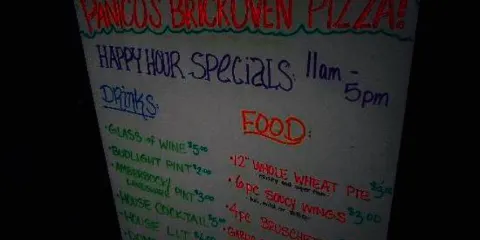 PANICOS BRICKOVEN PIZZA!
HAPPY HOUR SPECIALS: 11am -
5pm
DRINKS:
• GLASS of WINE $5.00
• BUDLIGHT PINT $2.00
• AMBERBOCK/
PINT $3.00
• HOUSE COCKTAIL
• HOUSE
FOOD:
• 12" WHOLE WHEAT PIE
• 6pc SAUCY WINGS $3.00
• 4pc